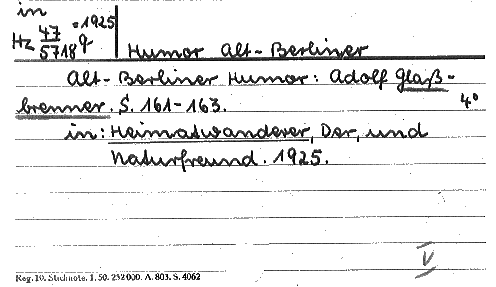 in
Hz 47/5718 q : 1925
Humor Alt-Berliner
Alt-Berliner Humor: Adolf Glaß-
brenner. S. 161-163.
4°
in: Heimatwanderer, Der, und
Naturfreund. 1925.
V
Reg. 10. Stichnote. 1. 50. 232000. A. 803. S. 4062